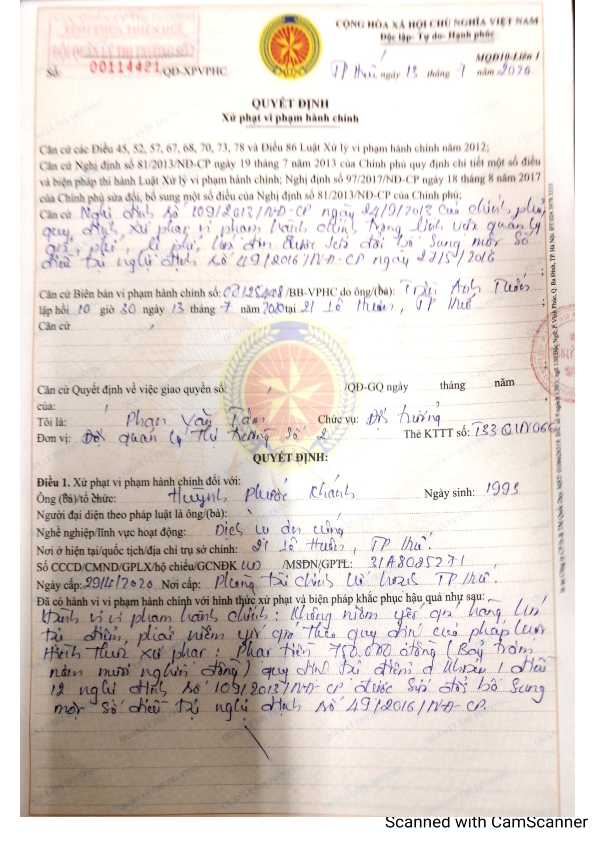 TỈNH THỪA THIÊN HUẾ
ĐỘI QUẢN LÝ THỊ TRƯỜNG SỐ 2
Số: 00114421/QĐ-XPVPHC
CỘNG HÒA XÃ HỘI CHỦ NGHĨA VIỆT NAM
Độc lập- Tự do- Hạnh phúc
MQĐ10-Liên 1
TP Huế ngày 13 tháng 7 năm 2020
QUYẾT ĐỊNH
Xử phạt vi phạm hành chính
Căn cứ các Điều 45, 52, 57, 67, 68, 70, 73, 78 và Điều 86 Luật Xử lý vi phạm hành chính năm 2012;
Căn cứ Nghị định số 81/2013/NĐ-CP ngày 19 tháng 7 năm 2013 của Chính phủ quy định chi tiết một số điều
và biện pháp thi hành Luật Xử lý vi phạm hành chính; Nghị định số 97/2017/NĐ-CP ngày 18 tháng 8 năm 2017
của Chính phủ sửa đổi, bổ sung một số điều của Nghị định số 81/2013/NĐ-CP của Chính phủ;
Căn cứ Nghị định số 109/2013/NĐ-CP ngày 24/9/2013 của chính phủ
quy định xử phạt vi phạm hành chính trong lĩnh vực quản lý
giá, phí, lệ phí, hóa đơn được sửa đổi bổ sung một số
điều tại nghị định số 49/2016/NĐ-CP ngày 27/5/2016
Căn cứ Biên bản vi phạm hành chính số: /BB-VPHC do ông/(bà): Anh Tuấn
lập hồi 10 giờ 30 ngày 13 tháng 7 năm 2020 tại 21 Tô Hướn, TP Huế
Căn cứ
Căn cứ Quyết định về việc giao quyền số: /QĐ-GQ ngày tháng năm
của:
Tôi là: Phan Văn Chức vụ: Đội trưởng
Đơn vị: Đội quản lý thị trường số 2 Thẻ KTTT số: T33
QUYẾT ĐỊNH:
Điều 1. Xử phạt vi phạm hành chính đối với:
Ông (bà)/tổ chức: Huỳnh Phước Khánh Ngày sinh: 1993
Người đại diện theo pháp luật là ông/(bà):
Nghề nghiệp/lĩnh vực hoạt động: Dịch vụ ăn uống
Nơi ở hiện tại/quốc tịch/địa chỉ trụ sở chính: 21 Tô Hướn, TP Huế.
Số CCCD/CMND/GPLX/hộ chiếu/GCNĐK /MSDN/GPTL: 31A8025271
Ngày cấp: 29/4/2020 Nơi cấp: Phòng Tài chính kế hoạch TP Huế.
Đã có hành vi vi phạm hành chính với hình thức xử phạt và biện pháp khắc phục hậu quả như sau:
Hành vi vi phạm hành chính: Không niêm yết giá hàng hóa
tại địa điểm phải niêm yết giá theo quy định của pháp luật
Hình thức xử phạt: Phạt tiền 750.000 đồng (Bảy trăm
năm mươi nghìn đồng) quy định tại điểm a khoản 1 điều
12 nghị định số 109/2013/NĐ-CP được sửa đổi bổ sung
một số điều tại nghị định số 49/2016/NĐ-CP.
Scanned with CamScanner